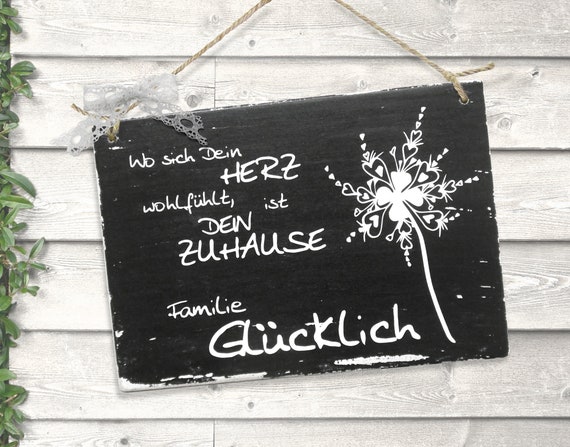 Wo sich Dein
HERZ
wohlfühlt, ist
DEIN
ZUHAUSE
Familie
Glücklich